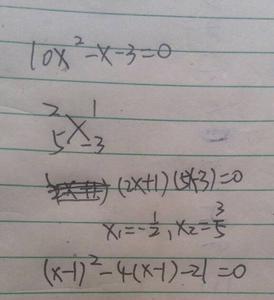 10x²-x-3=0
2 1
5 -3
(2x+1)(5x-3)=0
x₁=-1/2, x₂=3/5
(x-1)²-4(x-1)-21=0